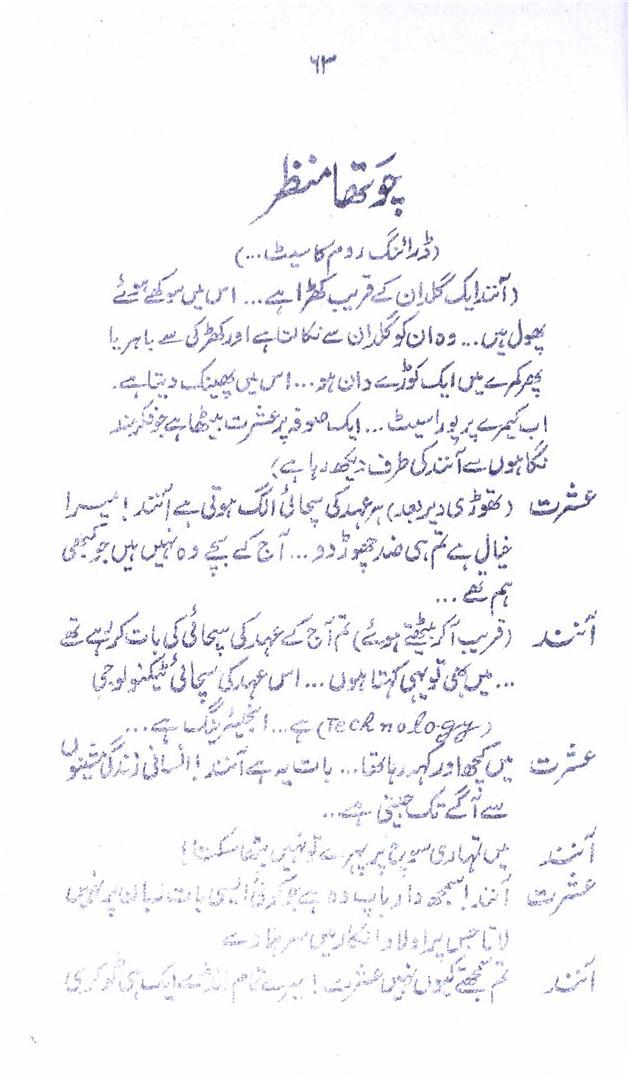 ۶۳
چوتھا منظر
(ڈرائنگ روم کا سیٹ...)
(آنند ایک گلدان کے قریب کھڑا ہے... اس میں سوکھے ہوئے
پھول ہیں... وہ ان کو گلدان سے نکالتا ہے اور کھڑکی سے باہر یا
پھر کمرے میں ایک کوڑے دان ہو... اس میں پھینک دیتا ہے.
اب کیمرے پر پورا سیٹ... ایک صوفہ پر عشرت بیٹھا ہے جو فکرمند
نگاہوں سے آنند کی طرف دیکھ رہا ہے)
عشرت (تھوڑی دیر بعد) ہر عہد کی سچائی الگ ہوتی ہے آنند! میرا
خیال ہے تم ہی ضد چھوڑ دو... آج کے بچے وہ نہیں ہیں جو کبھی
ہم تھے...
آنند (قریب آکر بیٹھتے ہوئے) تم آج کے عہد کی سچائی کی بات کر رہے تھے
... میں بھی تو یہی کہتا ہوں... اس عہد کی سچائی ٹیکنولوجی
(Technology) ہے... انجینئرنگ ہے...
عشرت میں کچھ اور کہہ رہا تھا... بات یہ ہے آنند! انسانی زندگی مشینوں
سے آگے تک جیتی ہے...
آنند میں تمہاری سوچ پر پہرے تو نہیں بٹھا سکتا!
عشرت آنند! سمجھ دار باپ وہ ہے جو کوئی ایسی بات زبان پر نہیں
لاتا جس پر اولاد انکار میں سر ہلا دے
آنند تم سمجھتے کیوں نہیں عشرت! میرے تمام انڈے ایک ہی ٹوکری